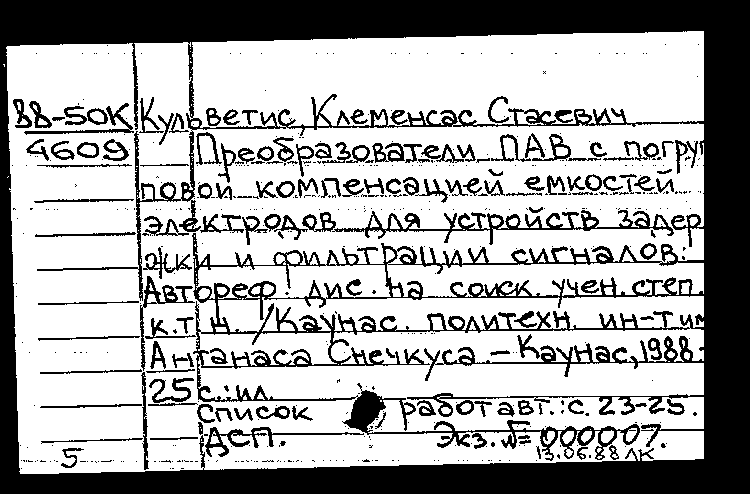 88-50К Кульветис, Клеменсас Стасевич
4609 Преобразователи ПАВ с погруп
повой компенсацией емкостей
электродов для устройств задер
жки и фильтрации сигналов:
Автореф. дис. на соиск. учен. степ.
к.т.н. /Каунас. политехн. ин-т им
Антанаса Снечкуса. – Каунас, 1988-
25 с.: ил.
Список работ авт.: с. 23-25.
ДСП. Экз. №= 000007.
5 13.06.88 ЛК